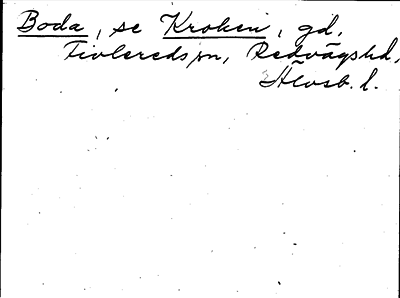 Boda, se Kroken, gd,
Tivleredsjon, Redvägshd,
Älvsb. l.